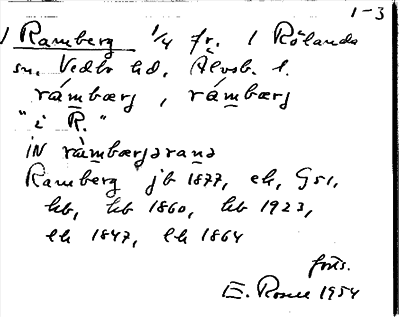 1-3
1 Ramberg 1/4 fr. 1 Rölanda
sn. Vedbo hd, Älvsb. l.
ràmbærj, rámbærj
"i R."
iN ràmbærjərana
Ramberg jb 1877, ek, Gsi,
hb, kb 1860, kb 1923,
lh 1847, lh 1864
forts.
E. Rosell 1954